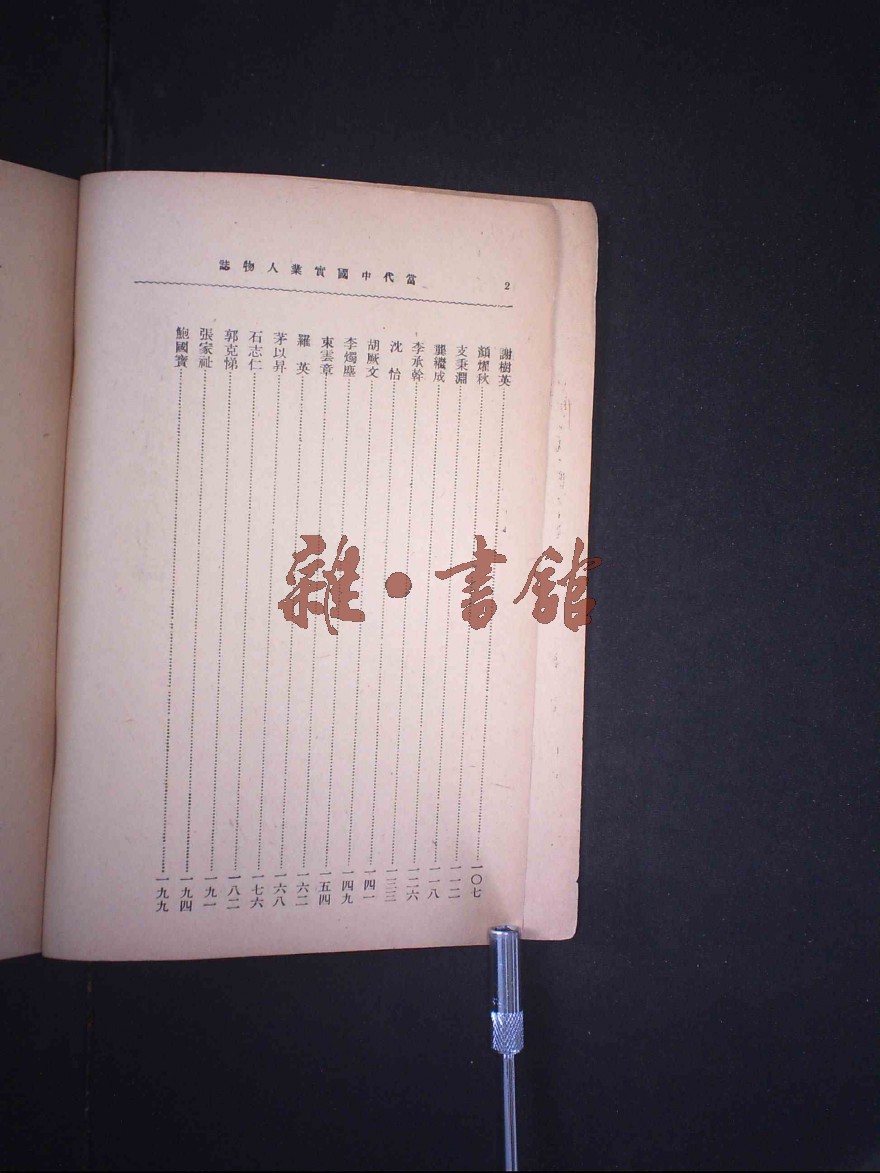 當代中國實業人物誌
2
謝樹英……一〇七
顏燿秋……一一二
支秉淵……一一八
龔繼成……一二六
李承幹……一三三
沈怡……一四一
胡厥文……一四九
李燭塵……一五四
束雲章……一六二
羅英……一六八
茅以昇……一七六
石志仁……一八二
郭克悌……一九一
張家祉……一九四
鮑國寶……一九九
雜·書館